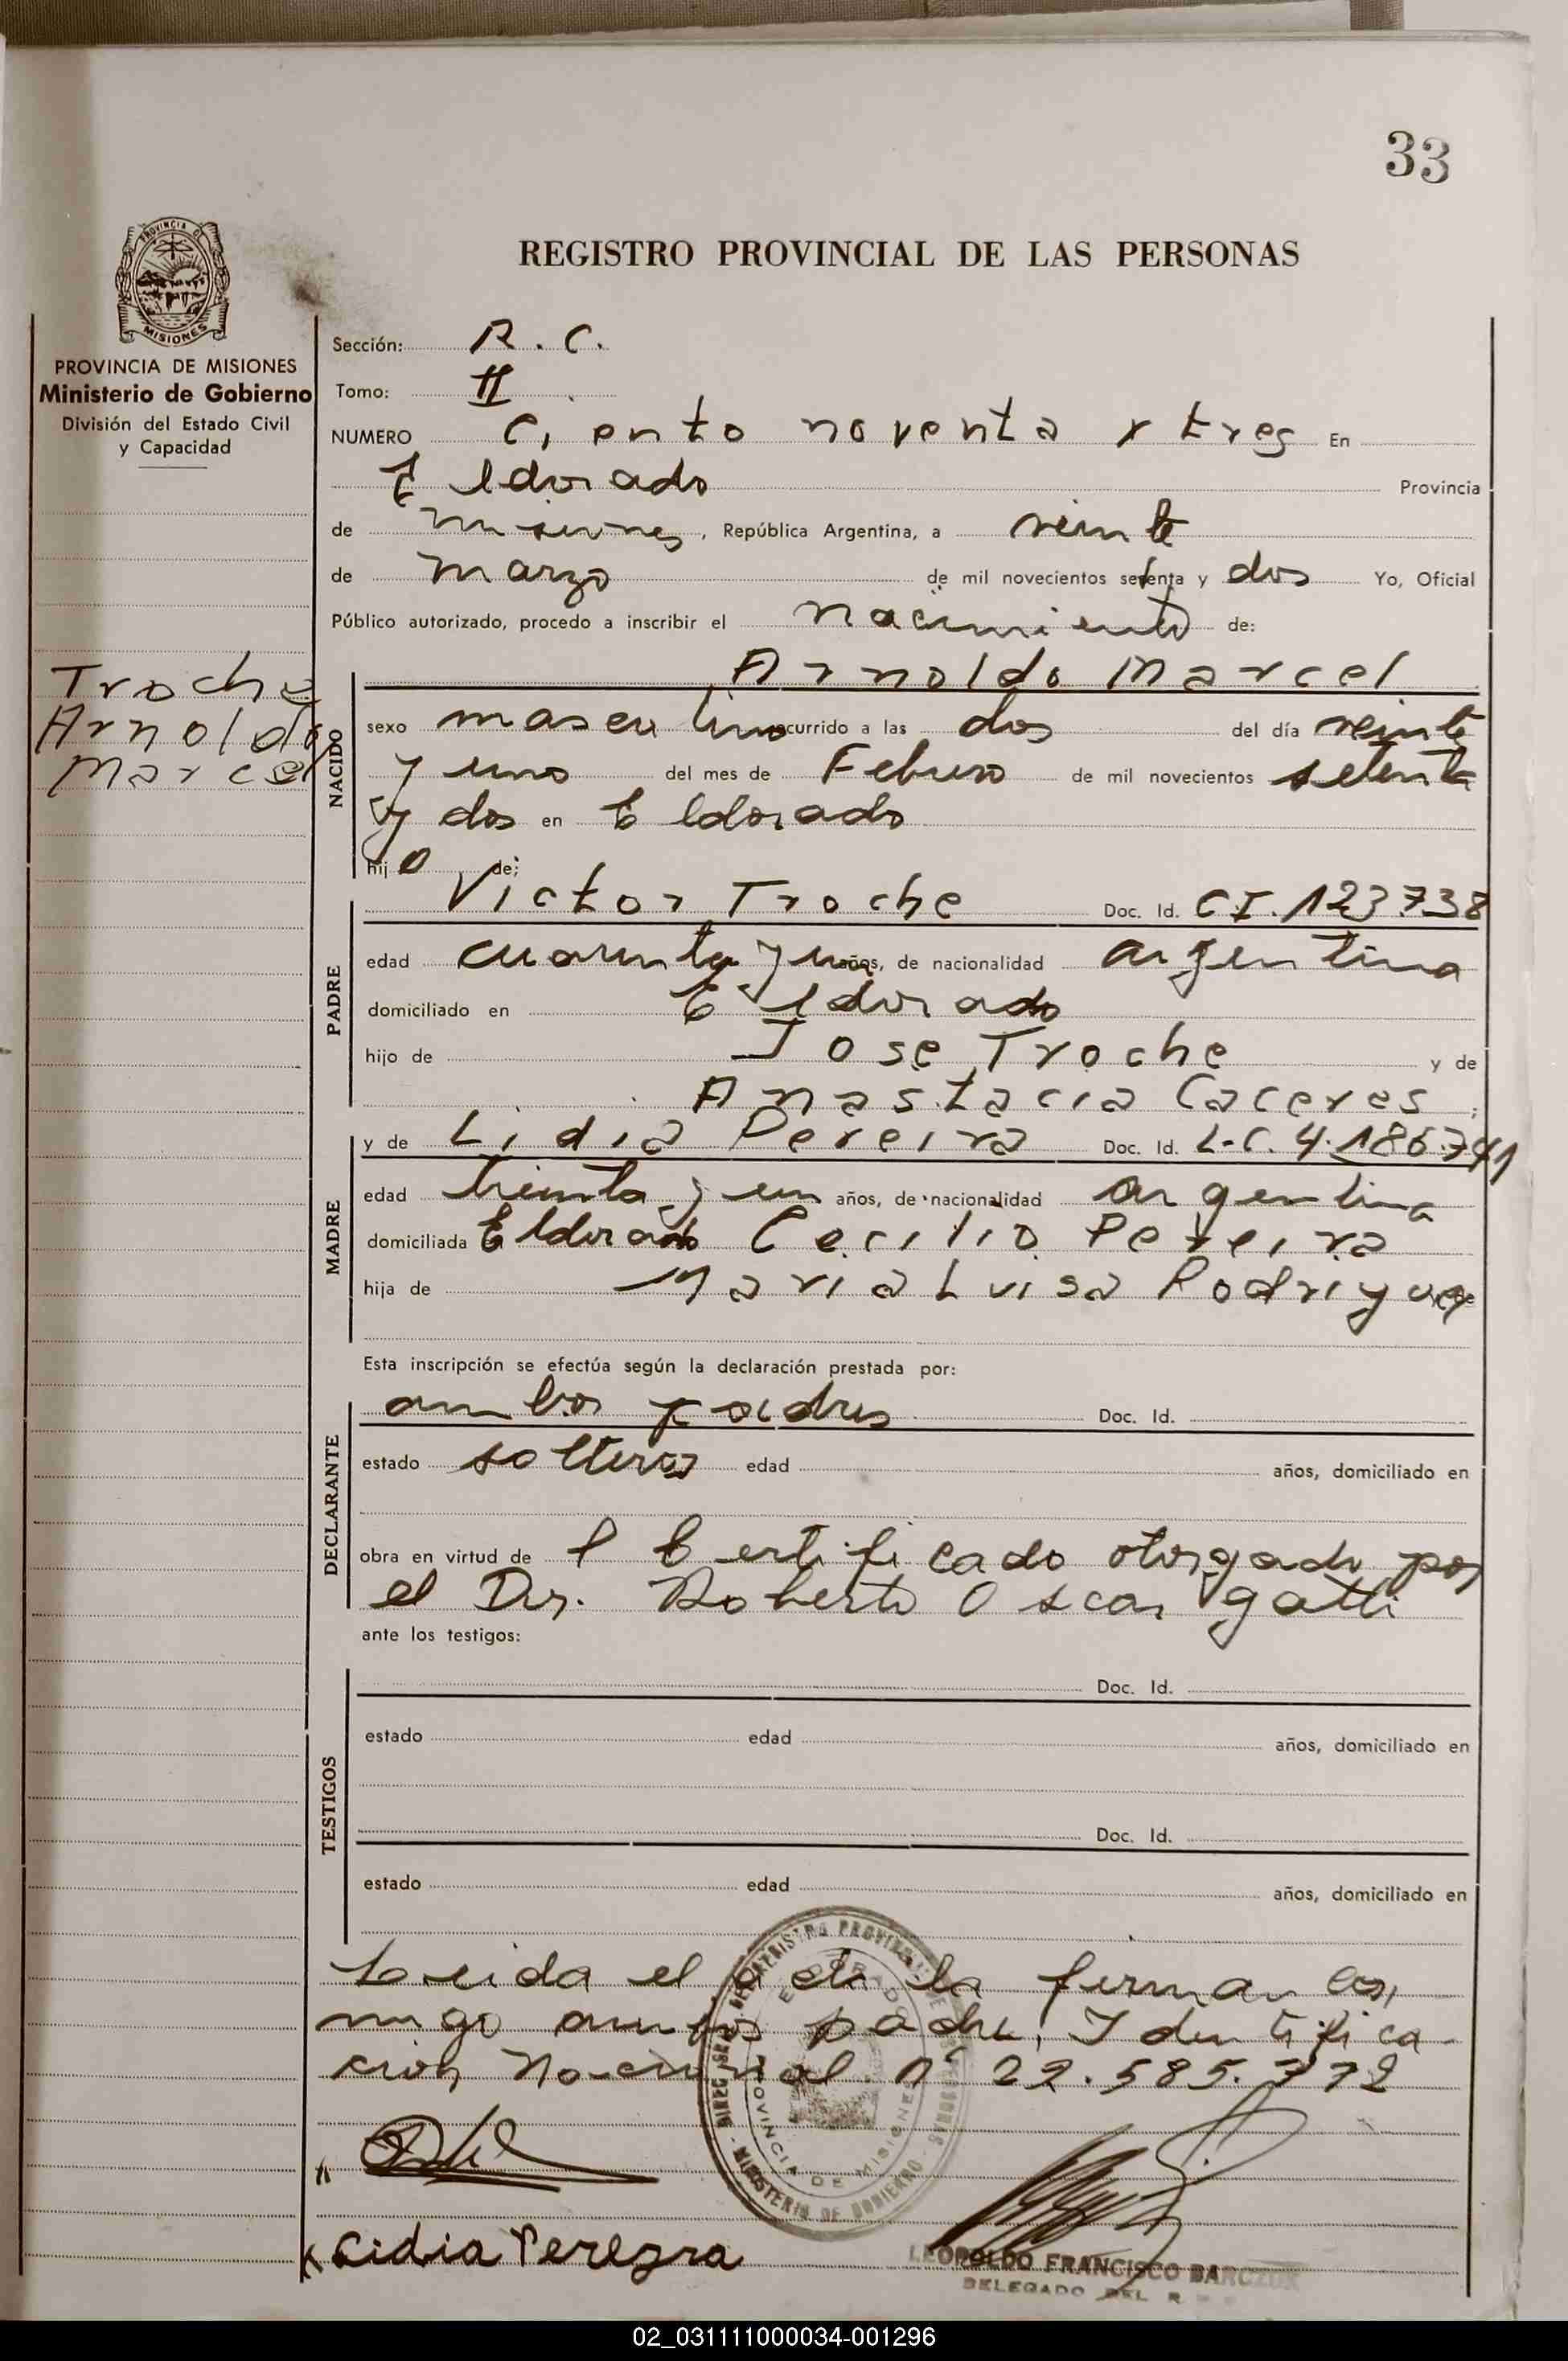 33
REGISTRO PROVINCIAL DE LAS PERSONAS
PROVINCIA DE MISIONES
Ministerio de Gobierno
División del Estado Civil
y Capacidad
Troche
Arnoldo
Marcel
Sección: R. C.
Tomo: II
NUMERO Ciento noventa y tres En
Eldorado Provincia
de Misiones, República Argentina, a veinte
de Marzo de mil novecientos setenta y dos Yo, Oficial
Público autorizado, procedo a inscribir el nacimiento de:
Arnoldo Marcel
NACIDO
sexo masculino ocurrido a las dos del día veinte
y uno del mes de Febrero de mil novecientos setenta
y dos en Eldorado
hijo de;
PADRE
Victor Troche Doc. Id. CI. 123738
edad cuarenta y un años, de nacionalidad argentina
domiciliado en Eldorado
hijo de Jose Troche y de
Anastacia Caceres ;
MADRE
y de Lidia Pereira Doc. Id. L.C. 4.186.741
edad treinta y un años, de nacionalidad argentina
domiciliada Eldorado Cecilio Pereira
hija de Maria Luisa Rodriguez
Esta inscripción se efectúa según la declaración prestada por:
DECLARANTE
ambos padres Doc. Id.
estado solteros edad años, domiciliado en
obra en virtud de l Certificado otorgado por
el Dr. Roberto Oscar Gatti
ante los testigos:
TESTIGOS
Doc. Id.
estado edad años, domiciliado en
Doc. Id.
estado edad años, domiciliado en
Leida el acta la firman con
migo ambos padres, Identifica
cion Nacional nº 22.585.772
ELDORADO
PROVINCIA DE MISIONES
MINISTERIO DE GOBIERNO
Lidia Pereyra
LEOPOLDO FRANCISCO BARCZUK
DELEGADO DEL R
02_031111000034-001296